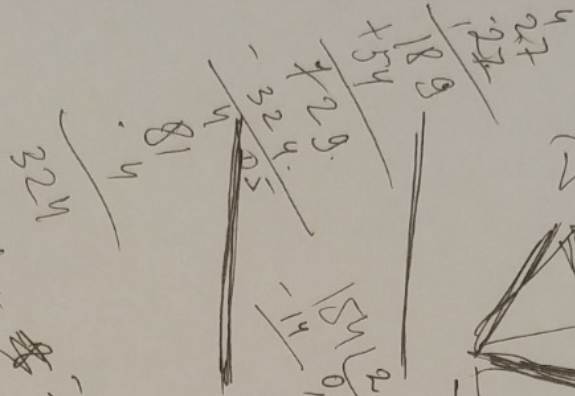 4
27
·27
189
+54
729
-324
405
81
·4
324
154
-14
2
0